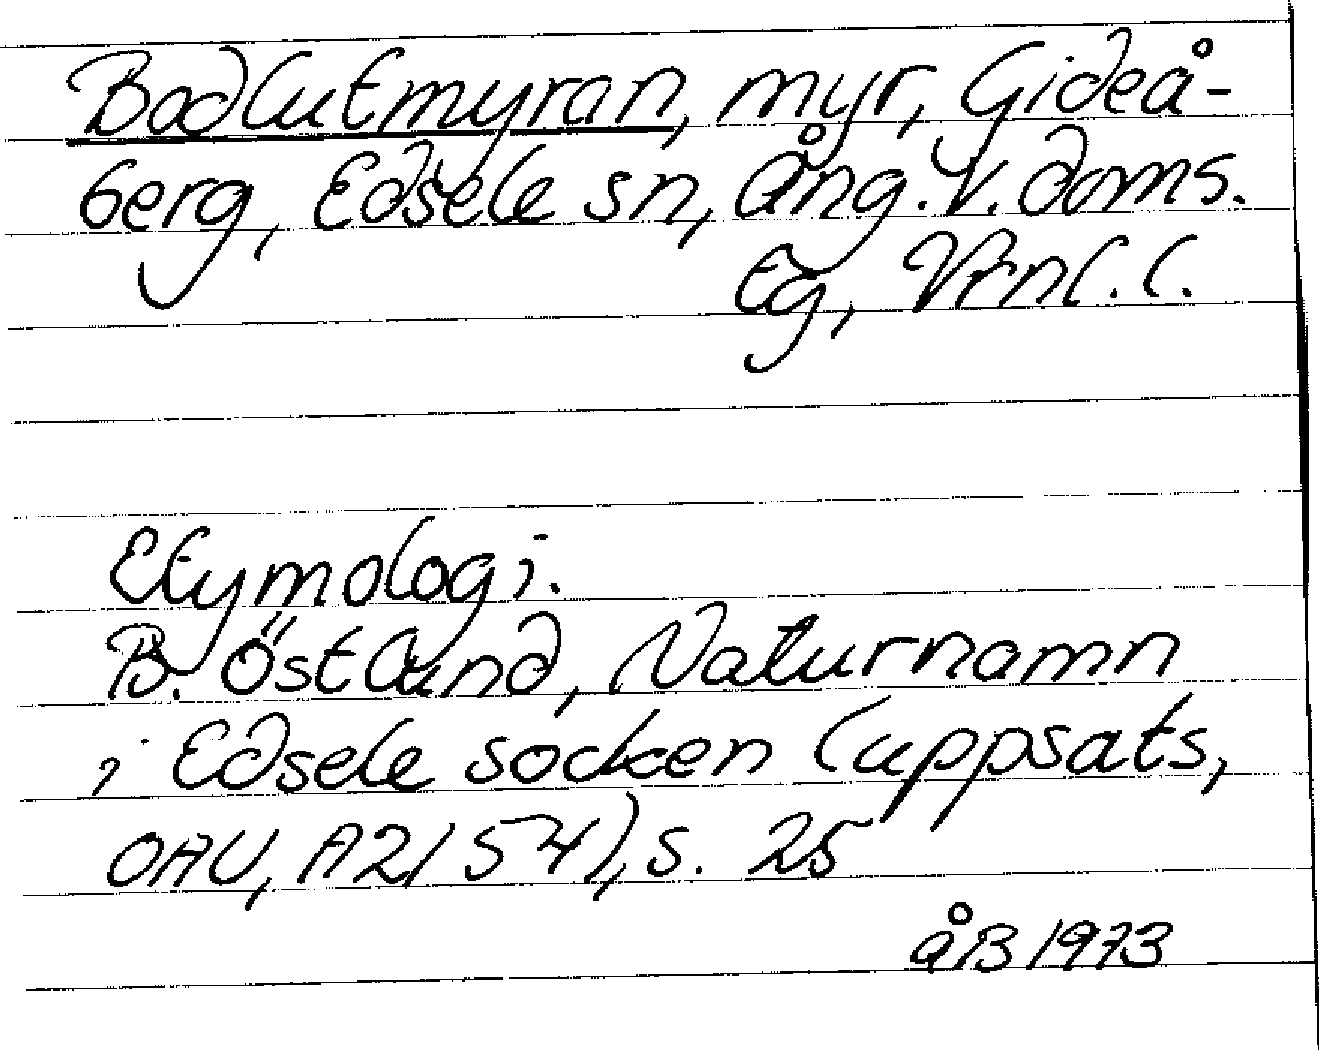 Badlutmyran, myr, Gideå-
berg, Edsele sn, Ång. V. doms.
Eg, Vrnl. l.
Etymologi.
B. Östlund, Naturnamn
i Edsele socken (uppsats,
OAU, A2/54), s. 25
ÅB 1973